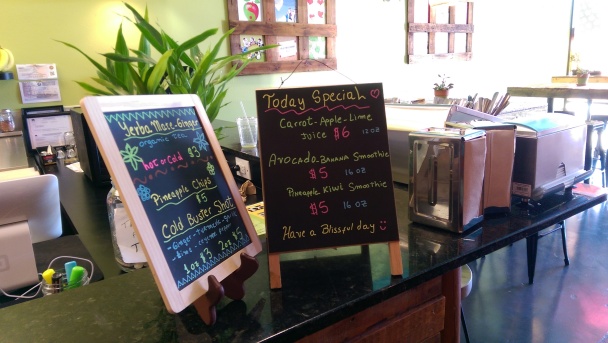 Yerba Mate-Ginger
organic tea
hot or cold $3
Pineapple Chips
$5
Cold Buster Shot
1oz $3 2oz $5
Today Special
Carrot-Apple-Lime
Juice $6 12 oz
Avocado-Banana Smoothie
$5 16 oz
Pineapple Kiwi Smoothie
$5 16 oz
Have a Blissful day